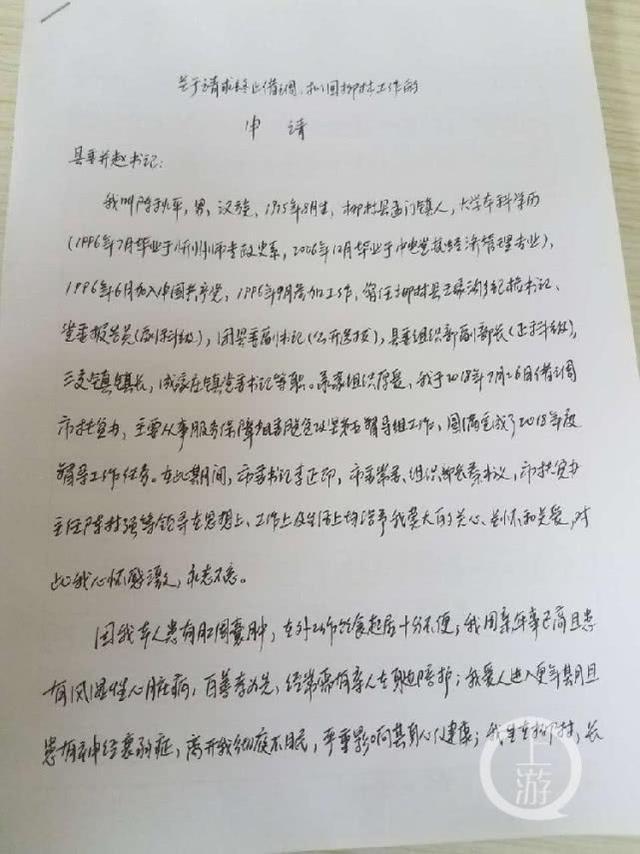 关于请求终止借调、拟回柳林工作的
申 请
县委并赵书记：
我叫陈秋平，男，汉族，1975年8月生，柳林县孟门镇人，大学本科学历
（1996年7月毕业于忻州师专政史系，2006年12月毕业于中央党校经济管理专业），
1996年6月加入中国共产党，1996年9月参加工作，曾任柳林县王家沟乡纪检书记、
党委报告员（副科级），团县委副书记（公开选拔），县委组织部副部长（正科级），
三交镇镇长，成家庄镇党委书记等职。承蒙组织厚爱，我于2018年7月26日借调
市扶贫办，主要从事服务保障脱贫攻坚督导组工作，圆满完成了2018年度
督导工作任务。在此期间，市委书记李正印，市委常委、组织部长秦书义，市扶贫办
主任陈林强等领导在思想上、工作上及生活上均给予我莫大的关心、关怀和关爱，对
此我心怀感激，永志不忘。
因我本人患有肛周囊肿，在外工作饮食起居十分不便；我母亲年事已高且患
有风湿性心脏病，百善孝为先，经常需有亲人在身边陪护；我爱人进入更年期且
患有神经衰弱症，离开我彻夜不眠，严重影响其身心健康；我生在柳林，长
上游